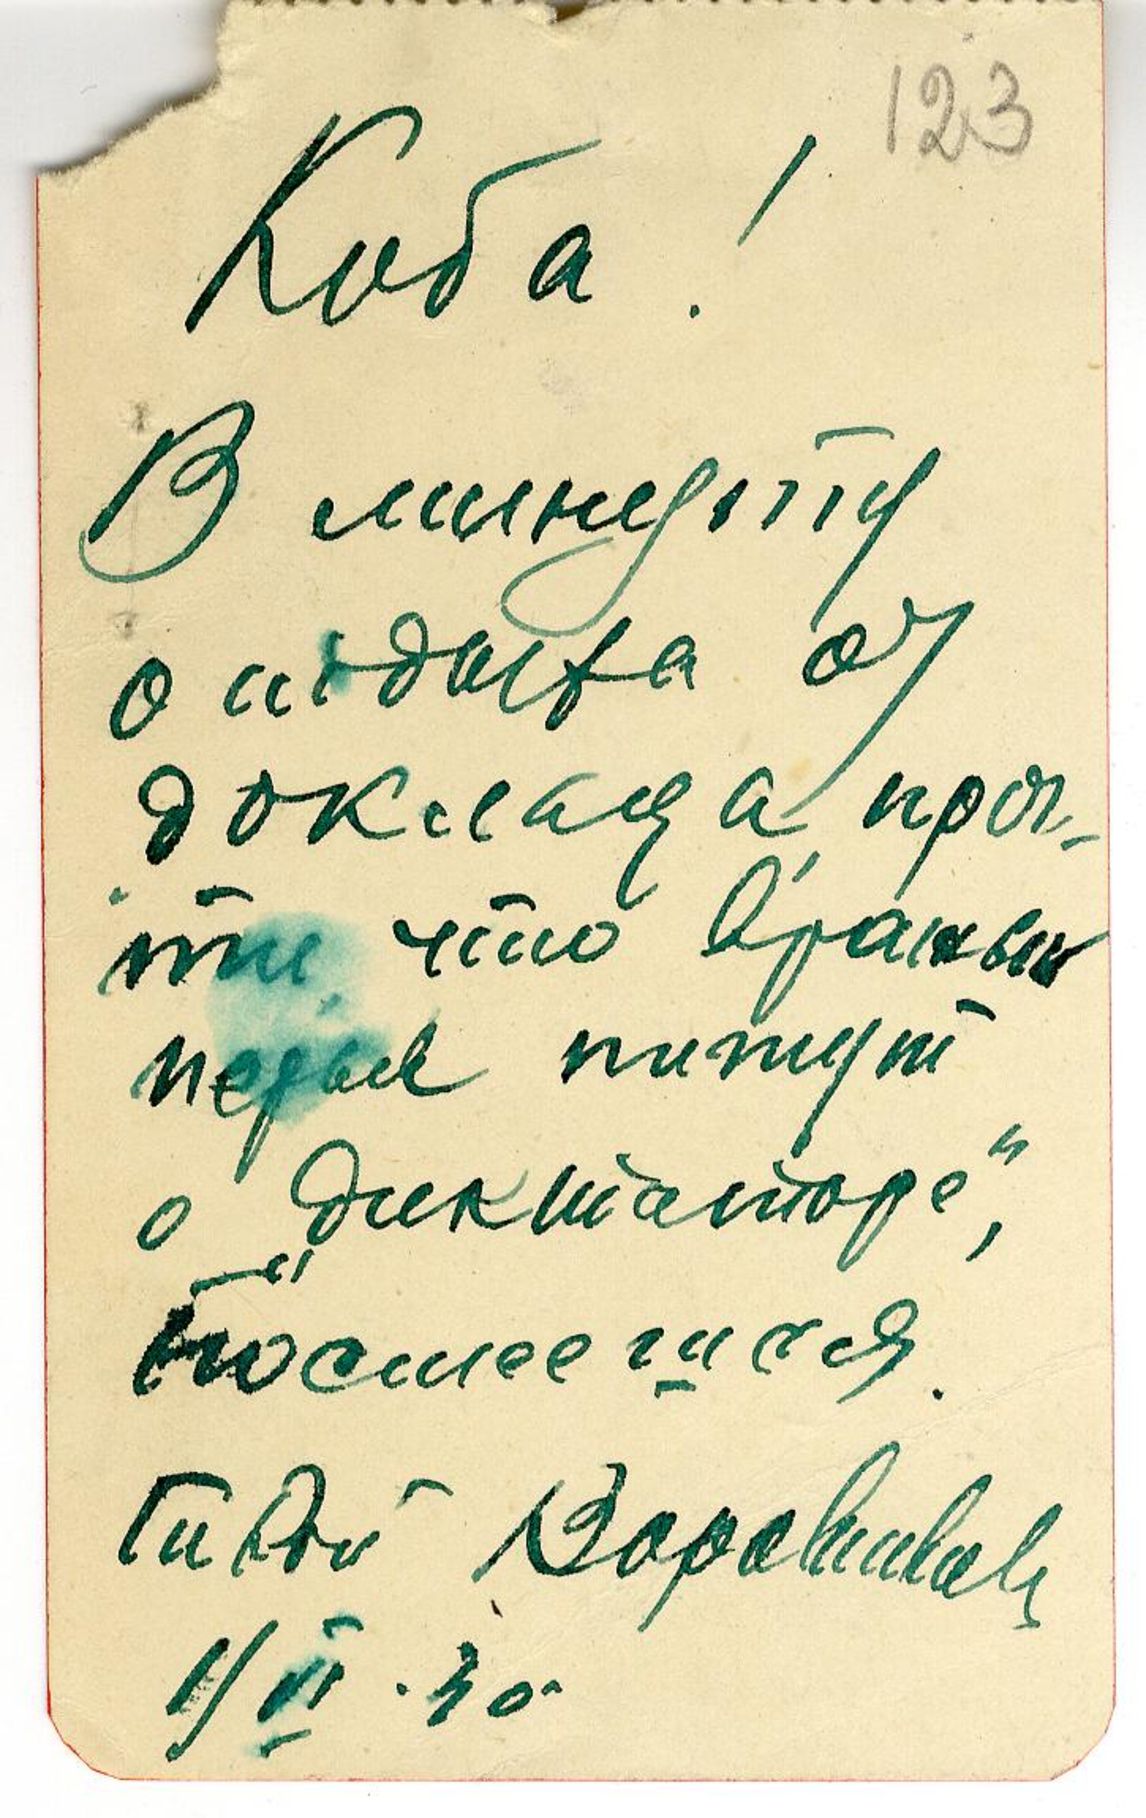 123
Коба!
В минуту
отдыха от
доклада, проч-
ти, что вражьи
перья пишут
о „диктаторе“,
посмеешься.
твой Ворошилов
1/VI.30